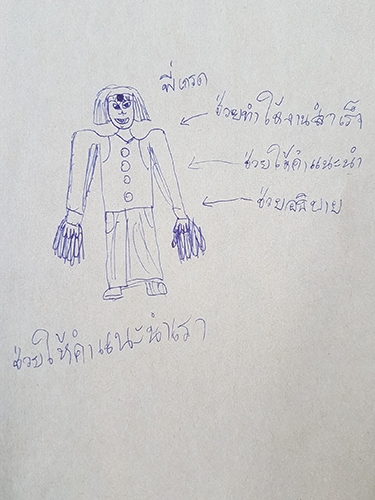 พี่เกรด
ช่วยทำให้งานสำเร็จ
ช่วยให้คำแนะนำ
ช่วยอธิบาย
ช่วยให้คำแนะนำเรา